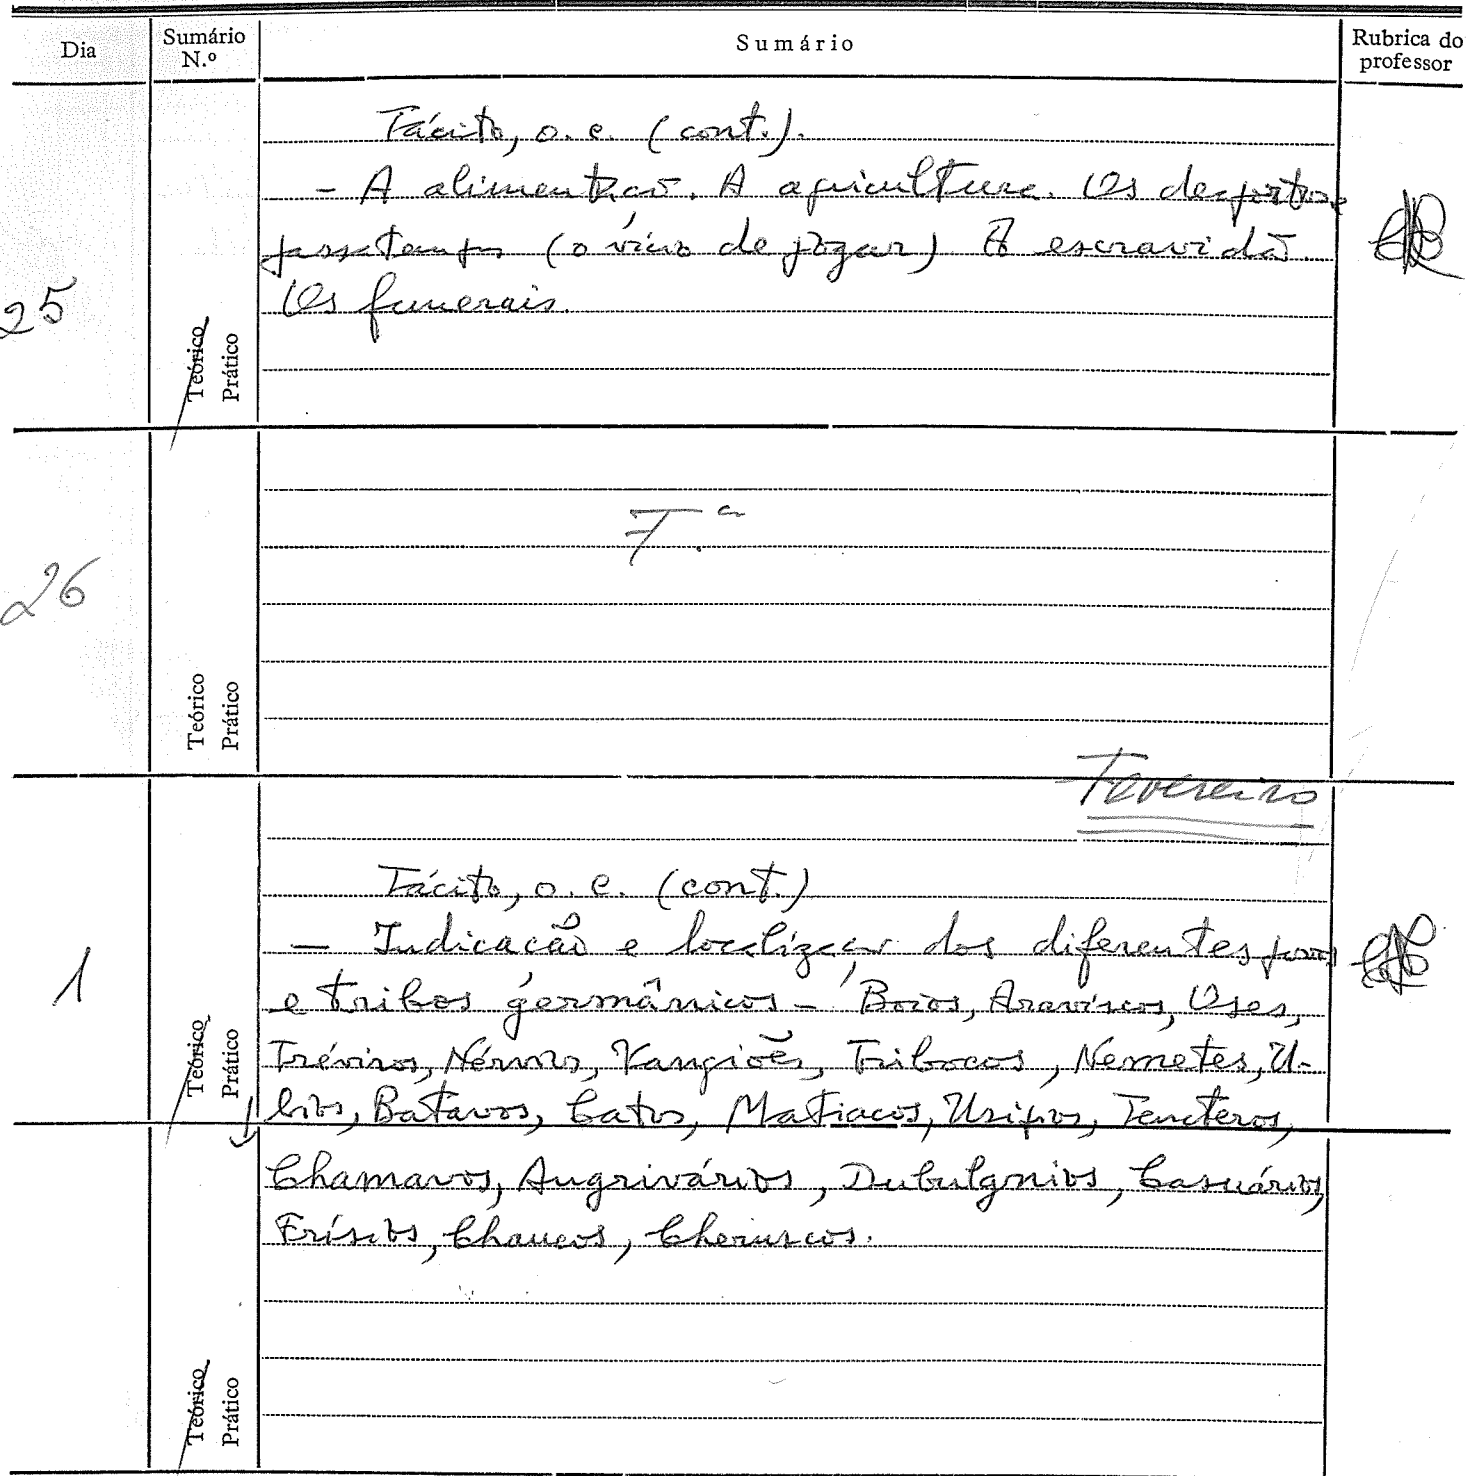 Dia
Sumário N.º
Sumário
Rubrica do professor
Tácito, o. c. (cont.).
- A alimentação. A agricultura. Os desportos e
passatempos (o vício de jogar) A escravidão.
Os funerais.
25
Teórico
Prático
26
Teórico
Prático
Fevereiro
Tácito, o. c. (cont.)
- Indicação e localização dos diferentes povos
e tribos germânicos - Boios, Araviscos, Oses,
Tréviros, Nérvios, Vangiões, Tribocos, Nemetes, U-
bios, Batavos, Catos, Matiacos, Usipos, Tencteros,
1
Teórico
Prático
Chamavos, Angrivários, Dubulgnios, Casuários,
Frísios, Chaucos, Cheruscos.
Teórico
Prático